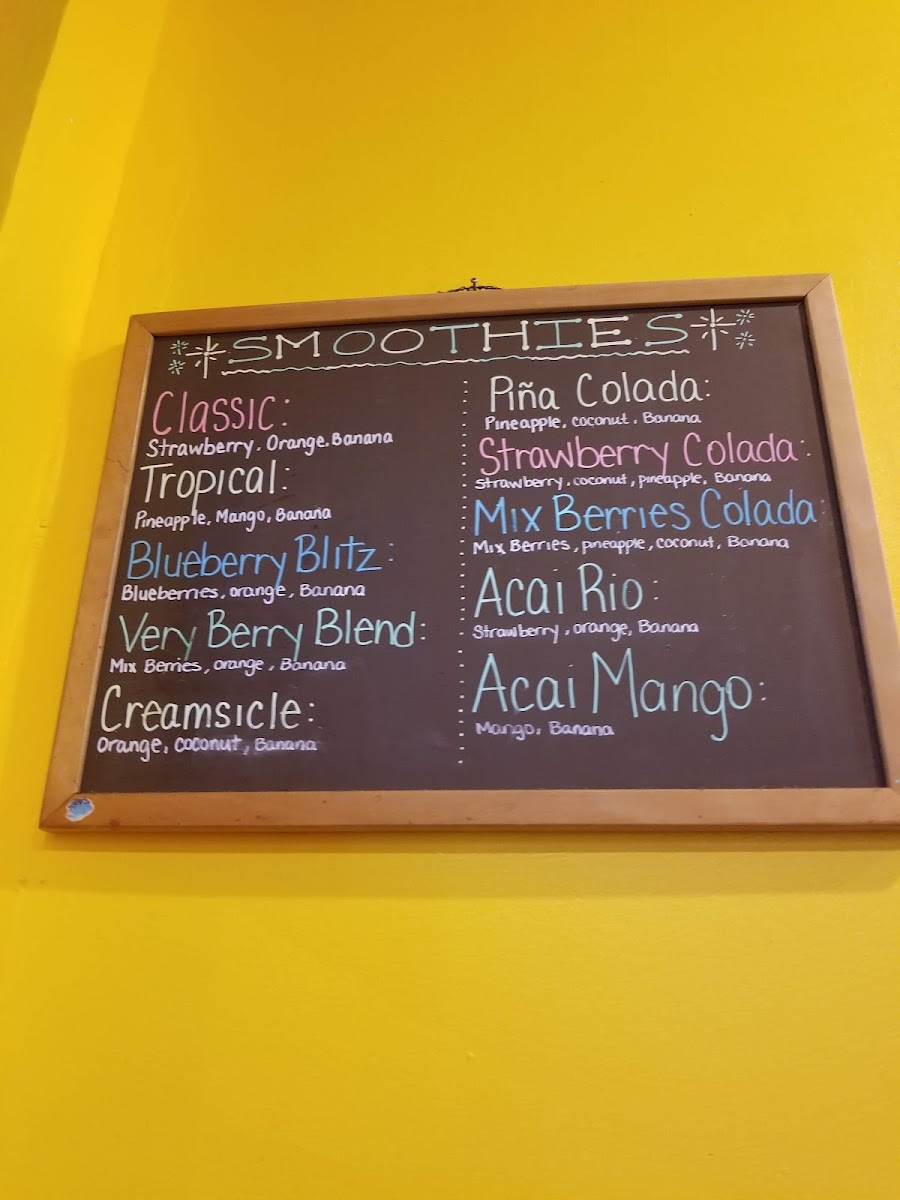 SMOOTHIES
Classic:
Strawberry, Orange, Banana
Tropical:
Pineapple, Mango, Banana
Blueberry Blitz:
Blueberries, orange, Banana
Very Berry Blend:
Mix Berries, orange, Banana
Creamsicle:
Orange, coconut, Banana
Piña Colada:
Pineapple, coconut, Banana
Strawberry Colada:
Strawberry, coconut, pineapple, Banana
Mix Berries Colada:
Mix Berries, pineapple, coconut, Banana
Acai Rio:
Strawberry, orange, Banana
Acai Mango:
Mango, Banana